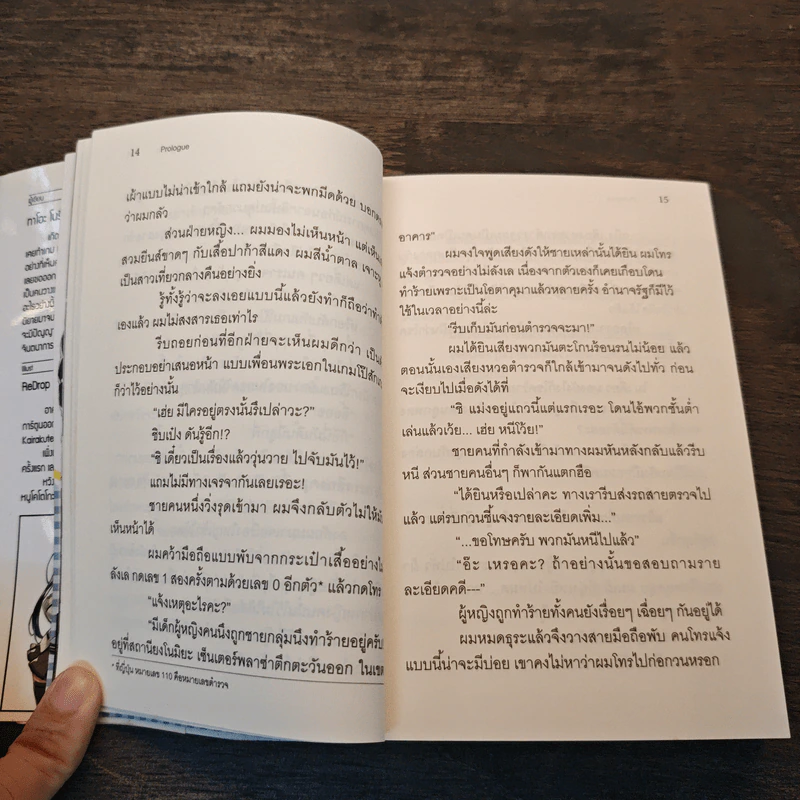 14 Prologue
เฝ้าแบบไม่น่าเข้าใกล้ แถมยังน่าจะพกมีดด้วย บอกตรง
ว่าผมกลัว
ส่วนฝ่ายหญิง... ผมมองไม่เห็นหน้า แต่เห็น
สวมยีนส์ขาดๆ กับเสื้อปาก้าสีแดง ผมสีน้ำตาล เจาะหู
เป็นสาวเที่ยวกลางคืนอย่างยิ่ง
รู้ทั้งรู้ว่าจะลงเอยแบบนี้แล้วยังทำก็ถือว่าทำ
เองแล้ว ผมไม่สงสารเธอเท่าไร
รีบถอยก่อนที่อีกฝ่ายจะเห็นผมดีกว่า เป็น
ประกอบอย่าเสนอหน้า แบบเพื่อนพระเอกในเกมโป๊สัก
ก็ว่าไว้อย่างนั้น
“เฮ่ย มีใครอยู่ตรงนั้นรึเปล่าวะ?”
ชิบเป๋ง ดันรู้อีก!?
“ชิ เดี๋ยวเป็นเรื่องแล้ววุ่นวาย ไปจับมันไว้!”
แถมไม่มีทางเจรจากันเลยเรอะ!
ชายคนหนึ่งวิ่งรุดเข้ามา ผมจึงกลับตัวไม่ให้
เห็นหน้าได้
ผมคว้ามือถือแบบพับจากกระเป๋าเสื้ออย่างไ
ลังเล กดเลข 1 สองครั้งตามด้วยเลข 0 อีกตัว* แล้วกดโทร
“แจ้งเหตุอะไรคะ?”
“มีเด็กผู้หญิงคนนึงถูกชายกลุ่มนึงทำร้ายอยู่ครับ
อยู่ที่สถานียงโนมิยะ เซ็นเตอร์พลาซ่าตึกตะวันออก ในเขต
* ที่ญี่ปุ่น หมายเลข 110 คือหมายเลขตำรวจ
15
อาคาร”
ผมจงใจพูดเสียงดังให้ชายเหล่านั้นได้ยิน ผมโทร
แจ้งตำรวจอย่างไม่ลังเล เนื่องจากตัวเองก็เคยเกือบโดน
ทำร้ายเพราะเป็นโอตาคุมาแล้วหลายครั้ง อำนาจรัฐก็มีไว้
ใช้ในเวลาอย่างนี้นี่ล่ะ
“รีบเก็บมันก่อนตำรวจจะมา!”
ผมได้ยินเสียงพวกมันตะโกนร้อนรนไม่น้อย แล้ว
ตอนนั้นเองเสียงหวอตำรวจก็ใกล้เข้ามาจนดังไปทั่ว ก่อน
จะเงียบไปเมื่อดังได้ที่
“ชิ แม่งอยู่แถวนี้แต่แรกเรอะ โดนไอ้พวกชั้นต่ำ
เล่นแล้วเว้ย... เฮ่ย หนีโว้ย!”
ชายคนที่กำลังเข้ามาทางผมหันหลังกลับแล้วรีบ
หนี ส่วนชายคนอื่นๆ ก็พากันแตกฮือ
“ได้ยินหรือเปล่าคะ ทางเรารีบส่งรถสายตรวจไป
แล้ว แต่รบกวนชี้แจงรายละเอียดเพิ่ม...”
“...ขอโทษครับ พวกมันหนีไปแล้ว”
“อ๊ะ เหรอคะ? ถ้าอย่างนั้นขอสอบถามราย
ละเอียดคดี---”
ผู้หญิงถูกทำร้ายทั้งคนยังเรื่อยๆ เฉื่อยๆ กันอยู่ได้
ผมหมดธุระแล้วจึงวางสายมือถือพับ คนโทรแจ้ง
แบบนี้น่าจะมีบ่อย เขาคงไม่หาว่าผมโทรไปก่อกวนหรอก
ReDrop